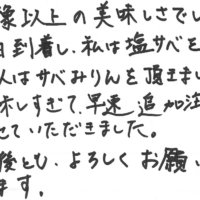 像以上の美味しさでし
日到着し、私は塩サベを
人はサベみりんを頂きまし
味しすぎて、早速追加注
せていただきました。
後とも、よろしくお願い
ます。